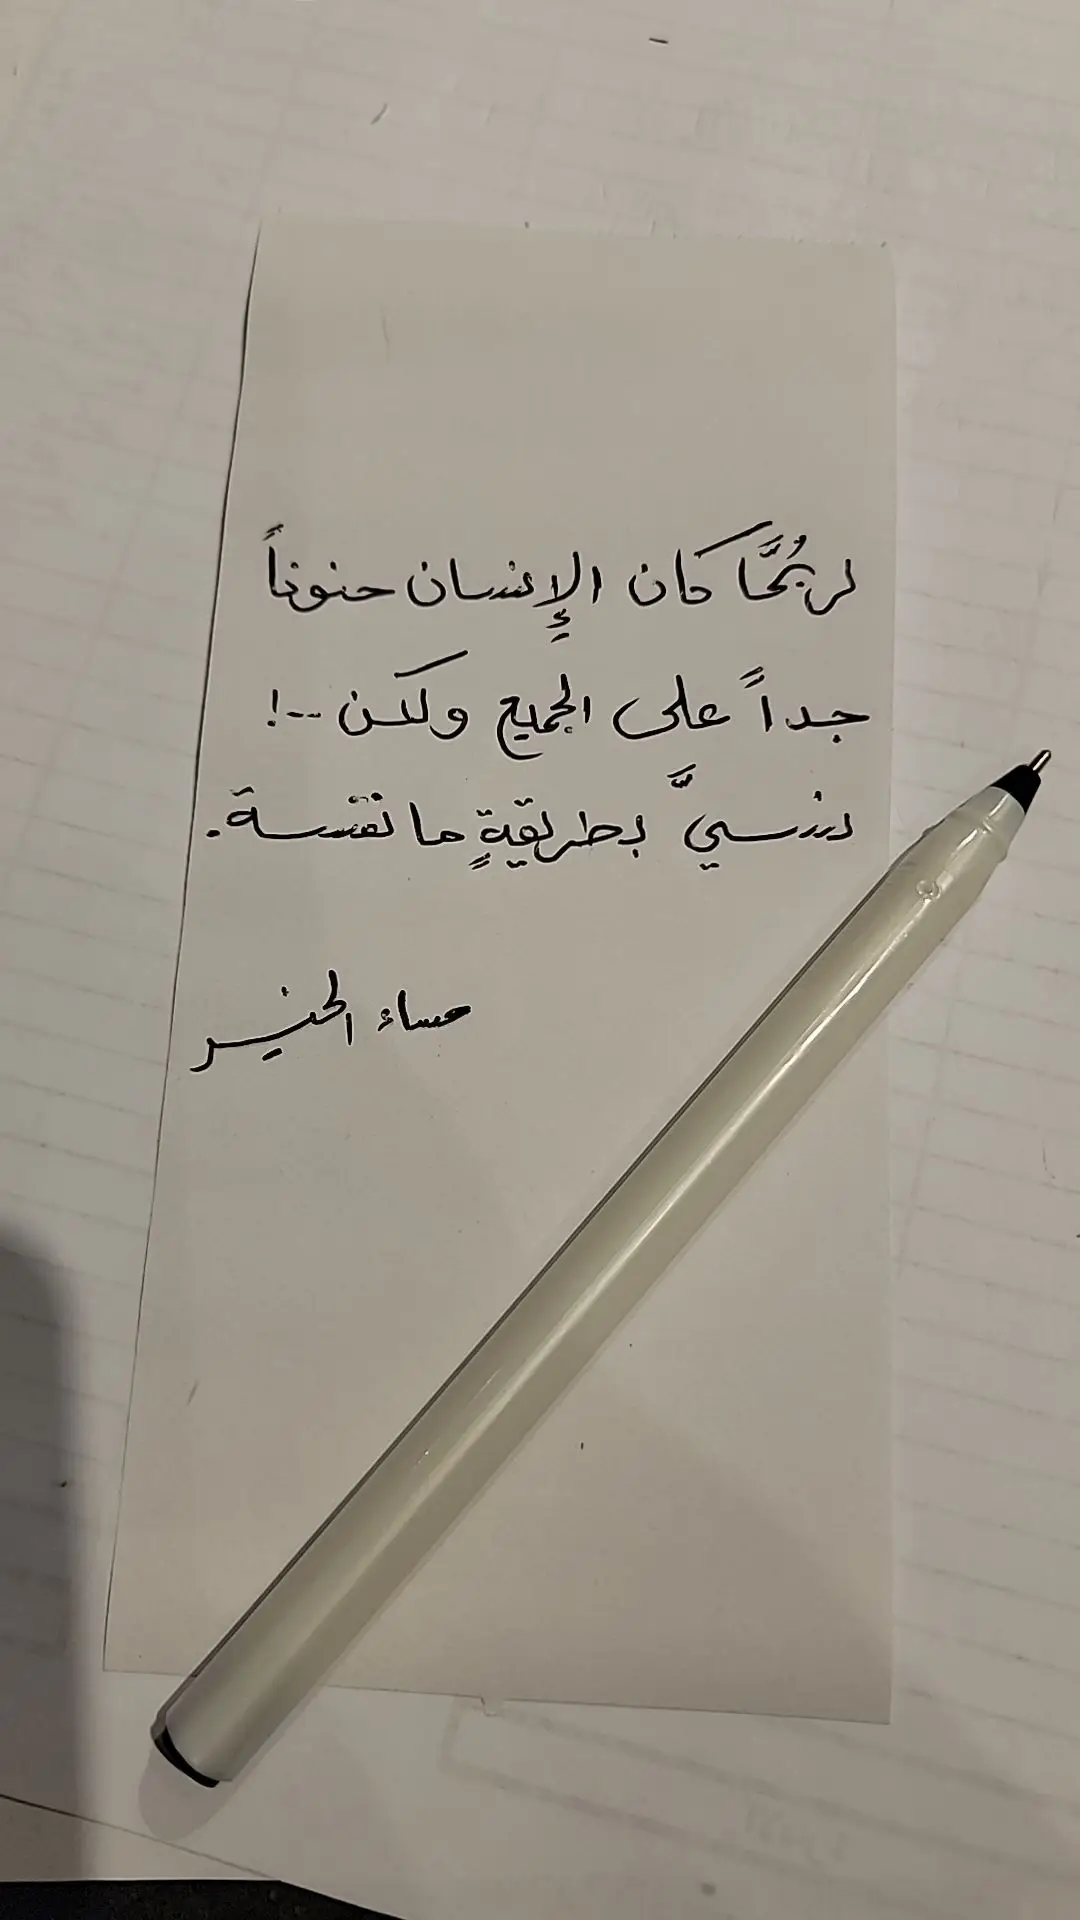 لربُمَّا كان الإِنسان حنوناً
جداً على الجميع ولكن --!
ينسيَّ بطريقةٍ ما نفسة.
مساء الخير